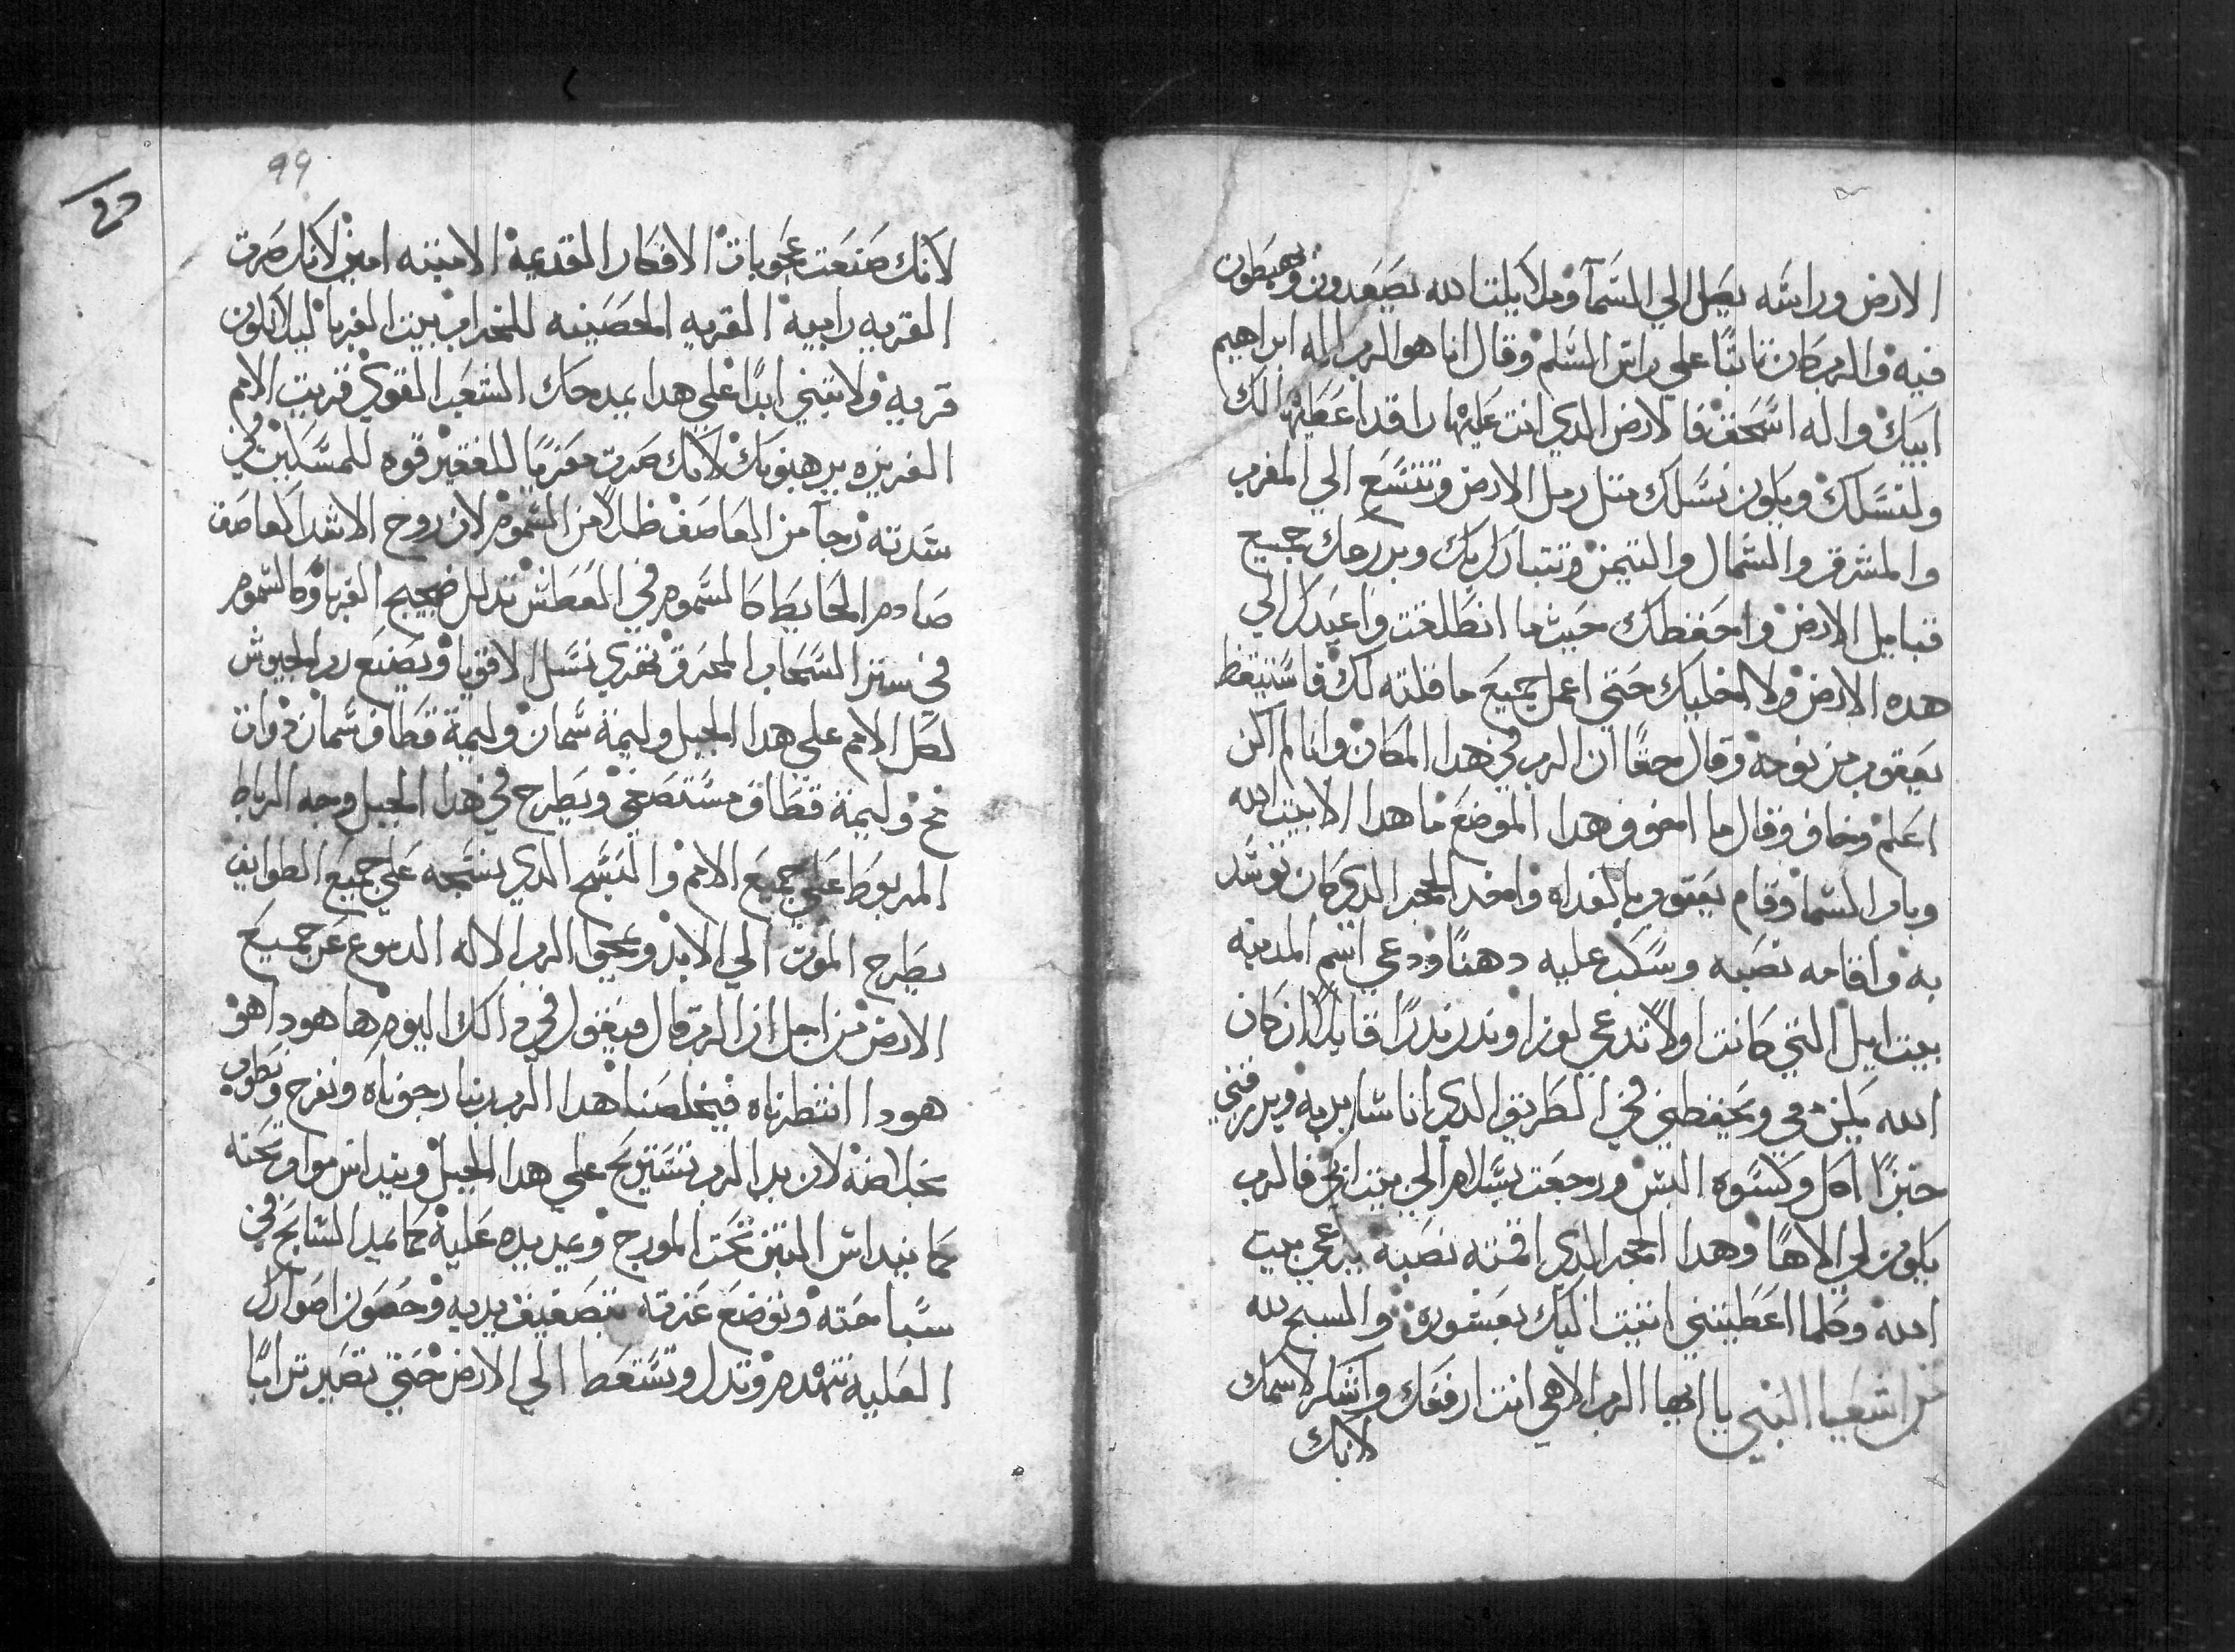 الارض وراسه يصل الي السمآ وملايكت الله يصعدون ويهبطون
فيه والرب كان تابتًا علي راس السلم وقال انا هو الرب اله ابراهيم
ابيك واله اسحق فالارض الدي انت عليها راقد اعطيها لك
ولنسلك ويكون نسلك متل رمل الارض وتتسع الي المغرب
والمشرق والشمال والتيمن وتتبارك بك وبزرعك جميع
قبايل الارض واحفظك حيث ما انطلقت واعيدك الي
هده الارض ولا اخليك حتي اعمل جميع ما قلته لك فاستيقظ
يعقوب من نومه وقال حقًا ان الرب في هدا المكان وانا لم اكن
اعلم وخاف وقال ما اخوف هدا الموضع ما هدا الا بيت الله
وباب السما وقام يعقوب بالغداه واخد الحجر الدي كان توسد
به واقامه نصبه وسكب عليه دهنًا ودعي اسم المدينه
بيت ايل التي كانت اولًا تدعي لوزا وندر ندرًا قايلًا ان كان
الله يكن معي ويحفظني في الطريق الدي انا ساير به ويرزقني
خبزًا اكل وكسوه البس ورجعت بسلام الي بيت ابي فالرب
يكون لي الاهًا وهدا الحجر الدي اقمته نصبه يدعي بيت
الله وكلما اعطيتني انيت اليك بعشوره والمسبح لله
من اشعيا النبي يا ايها الرب الاهي انت ارفعك واشكر لاسمك
لانك
99
لانك صنعت عجوبات الافكار القديمة الامينه امين لانك صرت
القريه رابية القريه الحصينه للخراب بيت الغربا ليلا تكون
قرية ولا تبني ابدًا علي هدا يمدحك الشعب القوي قريت الامم
العزيزه يرهبوبك لانك صرت معزيًا للفقير قوه للمسكين في
شدته رجآ من العاصف ظلًا من السموم لان روح الاشدا كعاصف
صادم الحايط كالسموم في العطش تدلل ضجيج الغربا وكالسموم
في ستر السحاب المحرق تقدي نسل الاقويا ويصنع رب الجيوش
لكل الامم علي هدا الجبل وليمة سمان وليمة قطاف سمان دوات
مخ وليمة قطاف مستصفي ويطرح في هدا الجبل وجه الرباط
المربوط علي جميع الامم والنسج الدي نسجه علي جميع الطوايف
يطرح الموت الي الابد ويمحوا الرب الاله الدموع عن جميع
الارض من اجل ان الرب قال فيقول في دالك اليوم ها هودا هو
هودا انتظرناه فيخلصنا هدا الرب ربنا رجوناه ونفرح ونطرب
بخلاصه لان يد الرب تستريح علي هدا الجبل وينداس مواب تحته
كما ينداس التبن تحت المورج ويمد يده عليه كما يمد السابح في
سباحته ويوضع عزته بتصفيف يديه وحصون اصوارك
العليه تهدم وتدل وتسقط الي الارض حتي تصير ترابًا